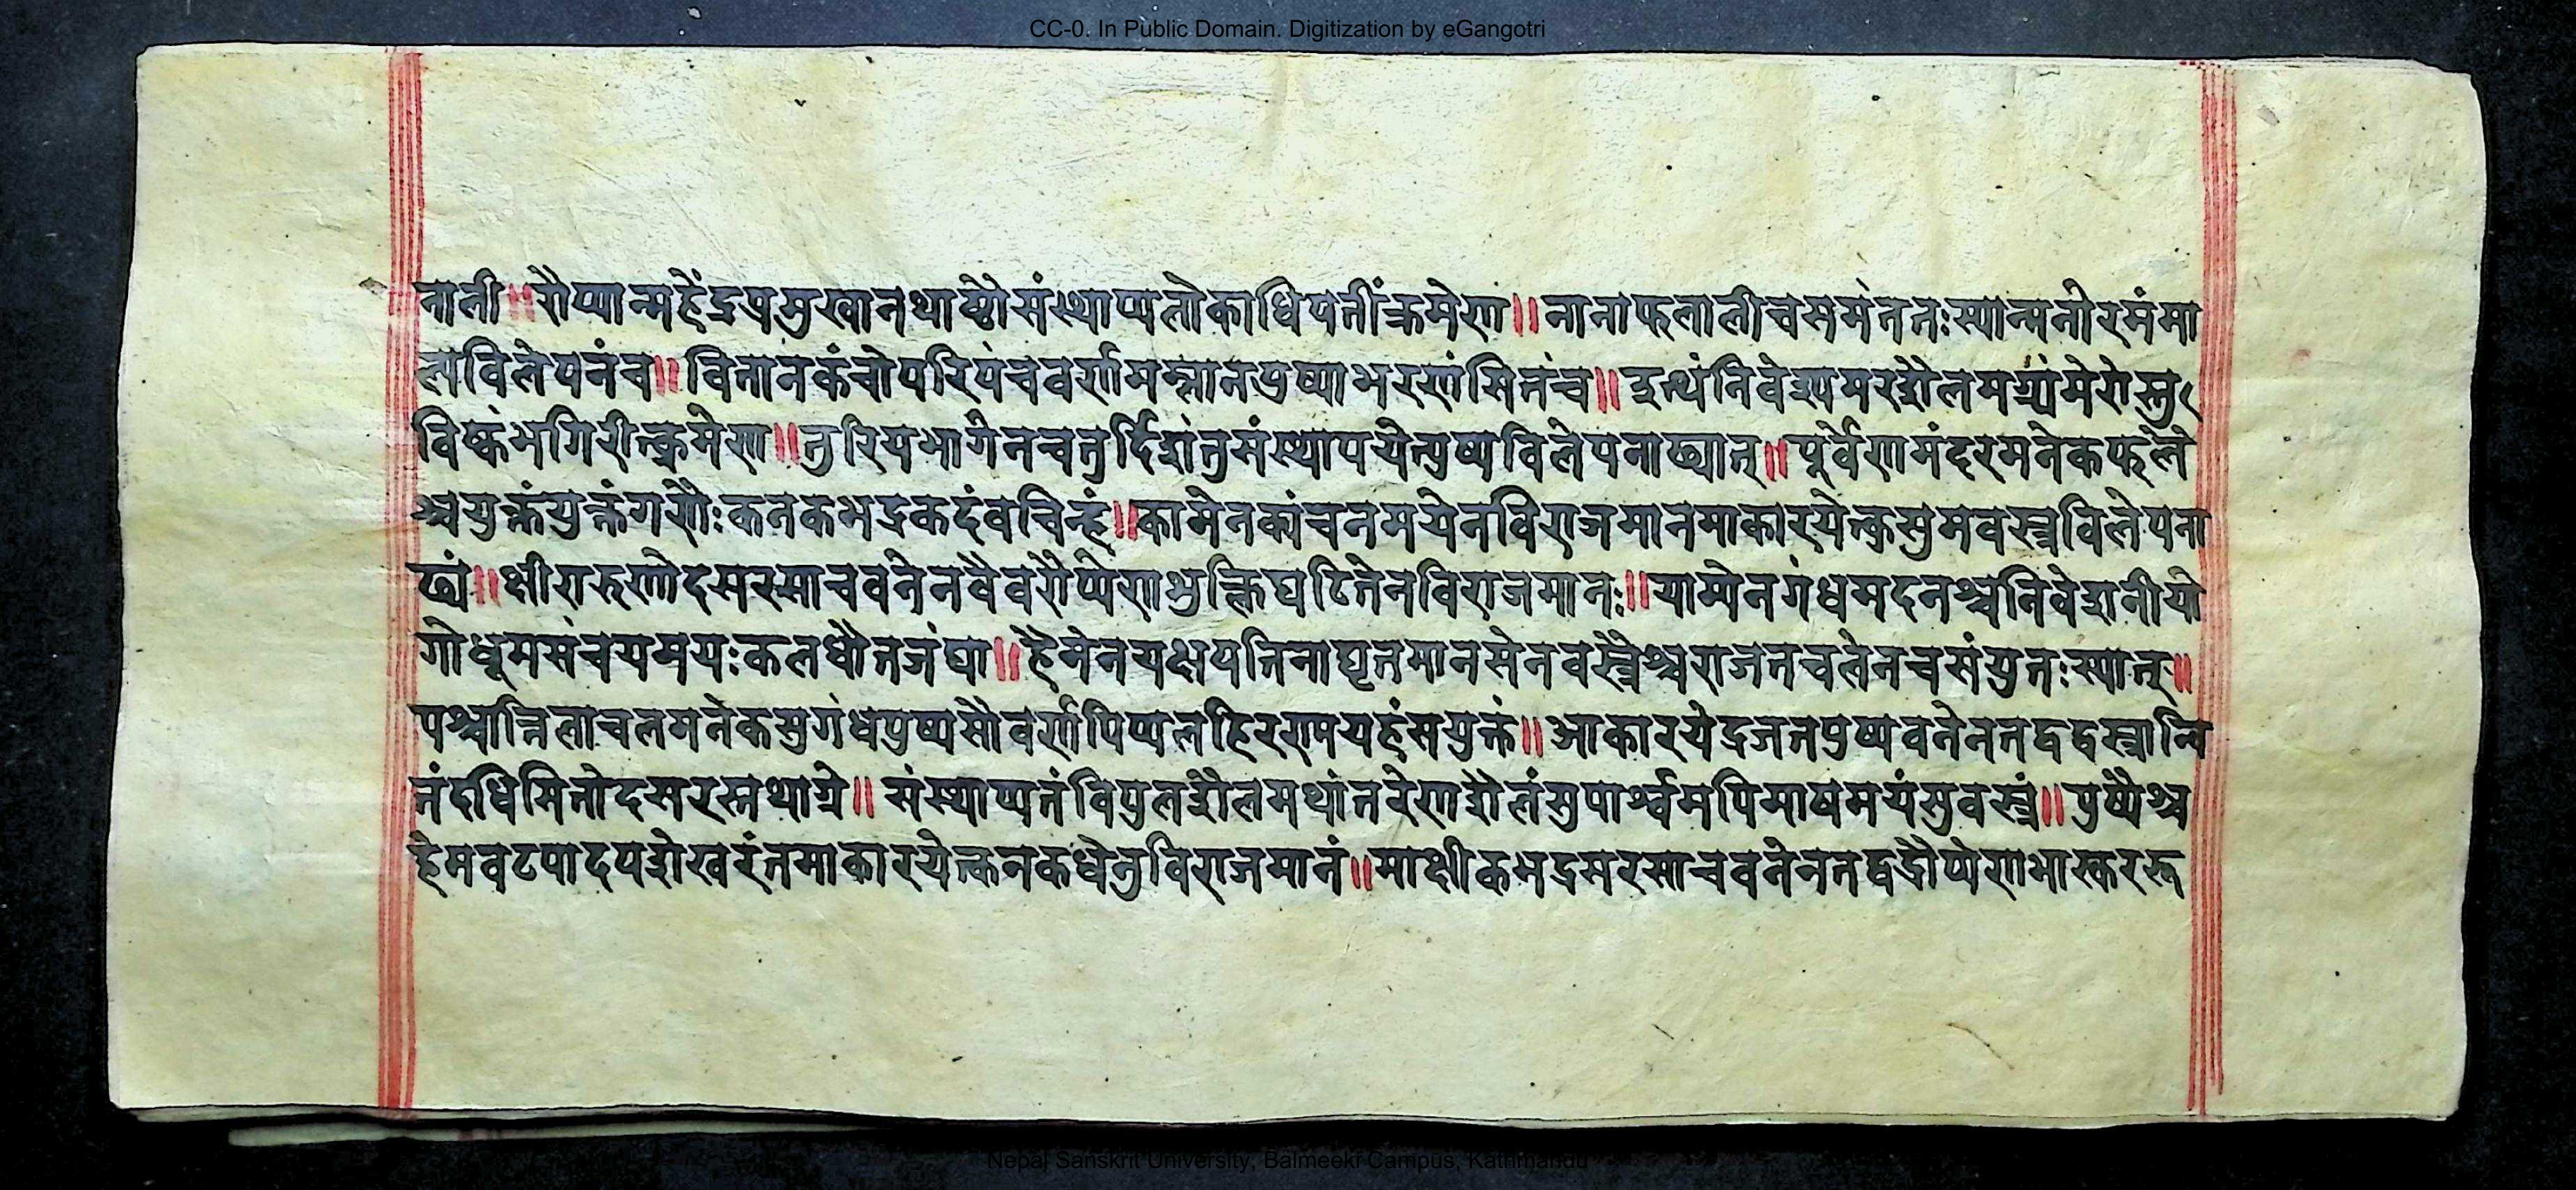 CC-0. In Public Domain. Digitization by eGangotri
नाली॥रौप्यान्महेंद्रप्रमुखानथाष्टौसंस्थाप्यलोकाधिपतींक्रमेण॥नानाफलालीचसमंततःस्यान्मनोरमंमा
ल्यविलेपनंच॥वितानकंचोपरिपंचवर्णमम्लानपुष्पाभरणंसितंच॥इत्थंनिवेश्यमरशैलमग्र्यंमेरोस्तु
विष्कंभगिरीन्क्रमेण॥तुरियभागेनचतुर्दिशंतुसंस्थापयेत्पुष्पविलेपनाढ्यात्॥पूर्वेणमंदरमनेकफले
श्चयुक्तंयुक्तंगणैःकनकभद्रकदंवचिन्हं॥कामेनकांचनमयेनविराजमानमाकारयेत्कुसुमवस्त्रविलेपना
ढ्यं॥क्षीरारुणोदसरसाचवनेनवैवरौप्येणभुक्तिघटितेनविराजमानः॥याम्येनगंधमदनश्चनिवेशनीयो
गोधूमसंचयमयःकलधौतजंघा॥हैमेनयक्षपतिनाघृतमानसेनवस्त्रैश्चराजतचलेनचसंयुतःस्यात्॥
पश्चात्तिलाचलमनेकसुगंधपुष्पसौवर्णपिप्पलहिरण्मयहंसयुक्तं॥आकारयेद्रजतपुष्पवनेनतद्वद्वस्त्रान्वि
तंदधिसितोदसरस्तथाग्रे॥संस्थाप्यतंविपुलशैलमथांतरेणशैलंसुपार्श्वमपिमाषमयंसुवस्त्रं॥पुष्पैश्च
हेमवटपादपशेखरंतमाकारयेत्कनकधेनुविराजमानं॥माक्षीकभद्रसरसाचवनेनतद्वद्रौप्येणभास्कररू
Nepal Sanskrit University, Balmeeki Campus, Kathmandu